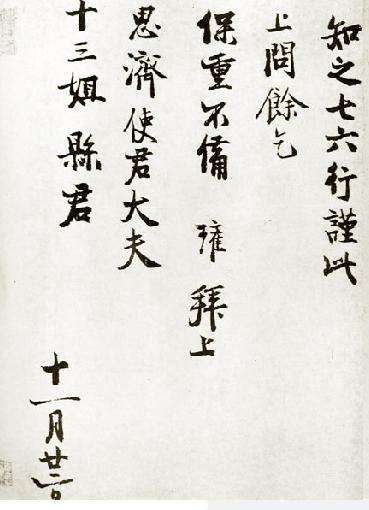 知之七六行謹此
上問餘乞
保重不備 瓘 拜上
思濟使君大夫
十三姐縣君
十一月廿二日